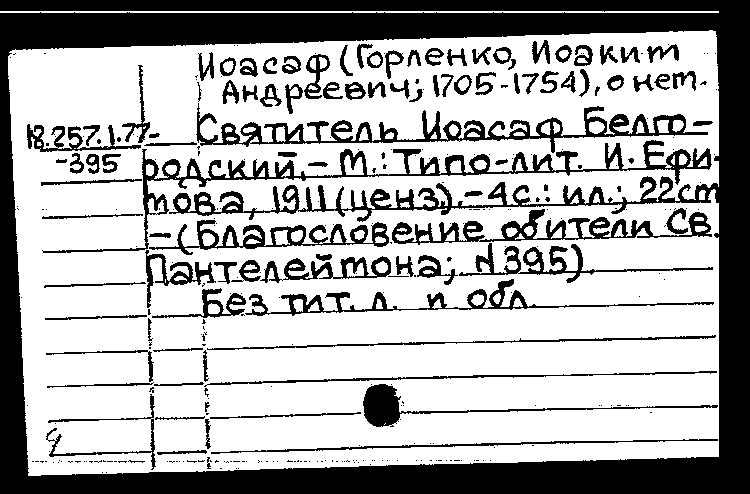 Иоасаф (Горленко, Иоаким
Андреевич; 1705-1754), о нем.
18.257.1.77- Святитель Иоасаф Белго-
-395 родский. - М.: Типо-лит. И. Ефи-
мова, 1911 (ценз.). - 4 с.: ил.; 22 см
- (Благословение обители Св.
Пантелеймона; N 395).
Без тит. л. и обл.